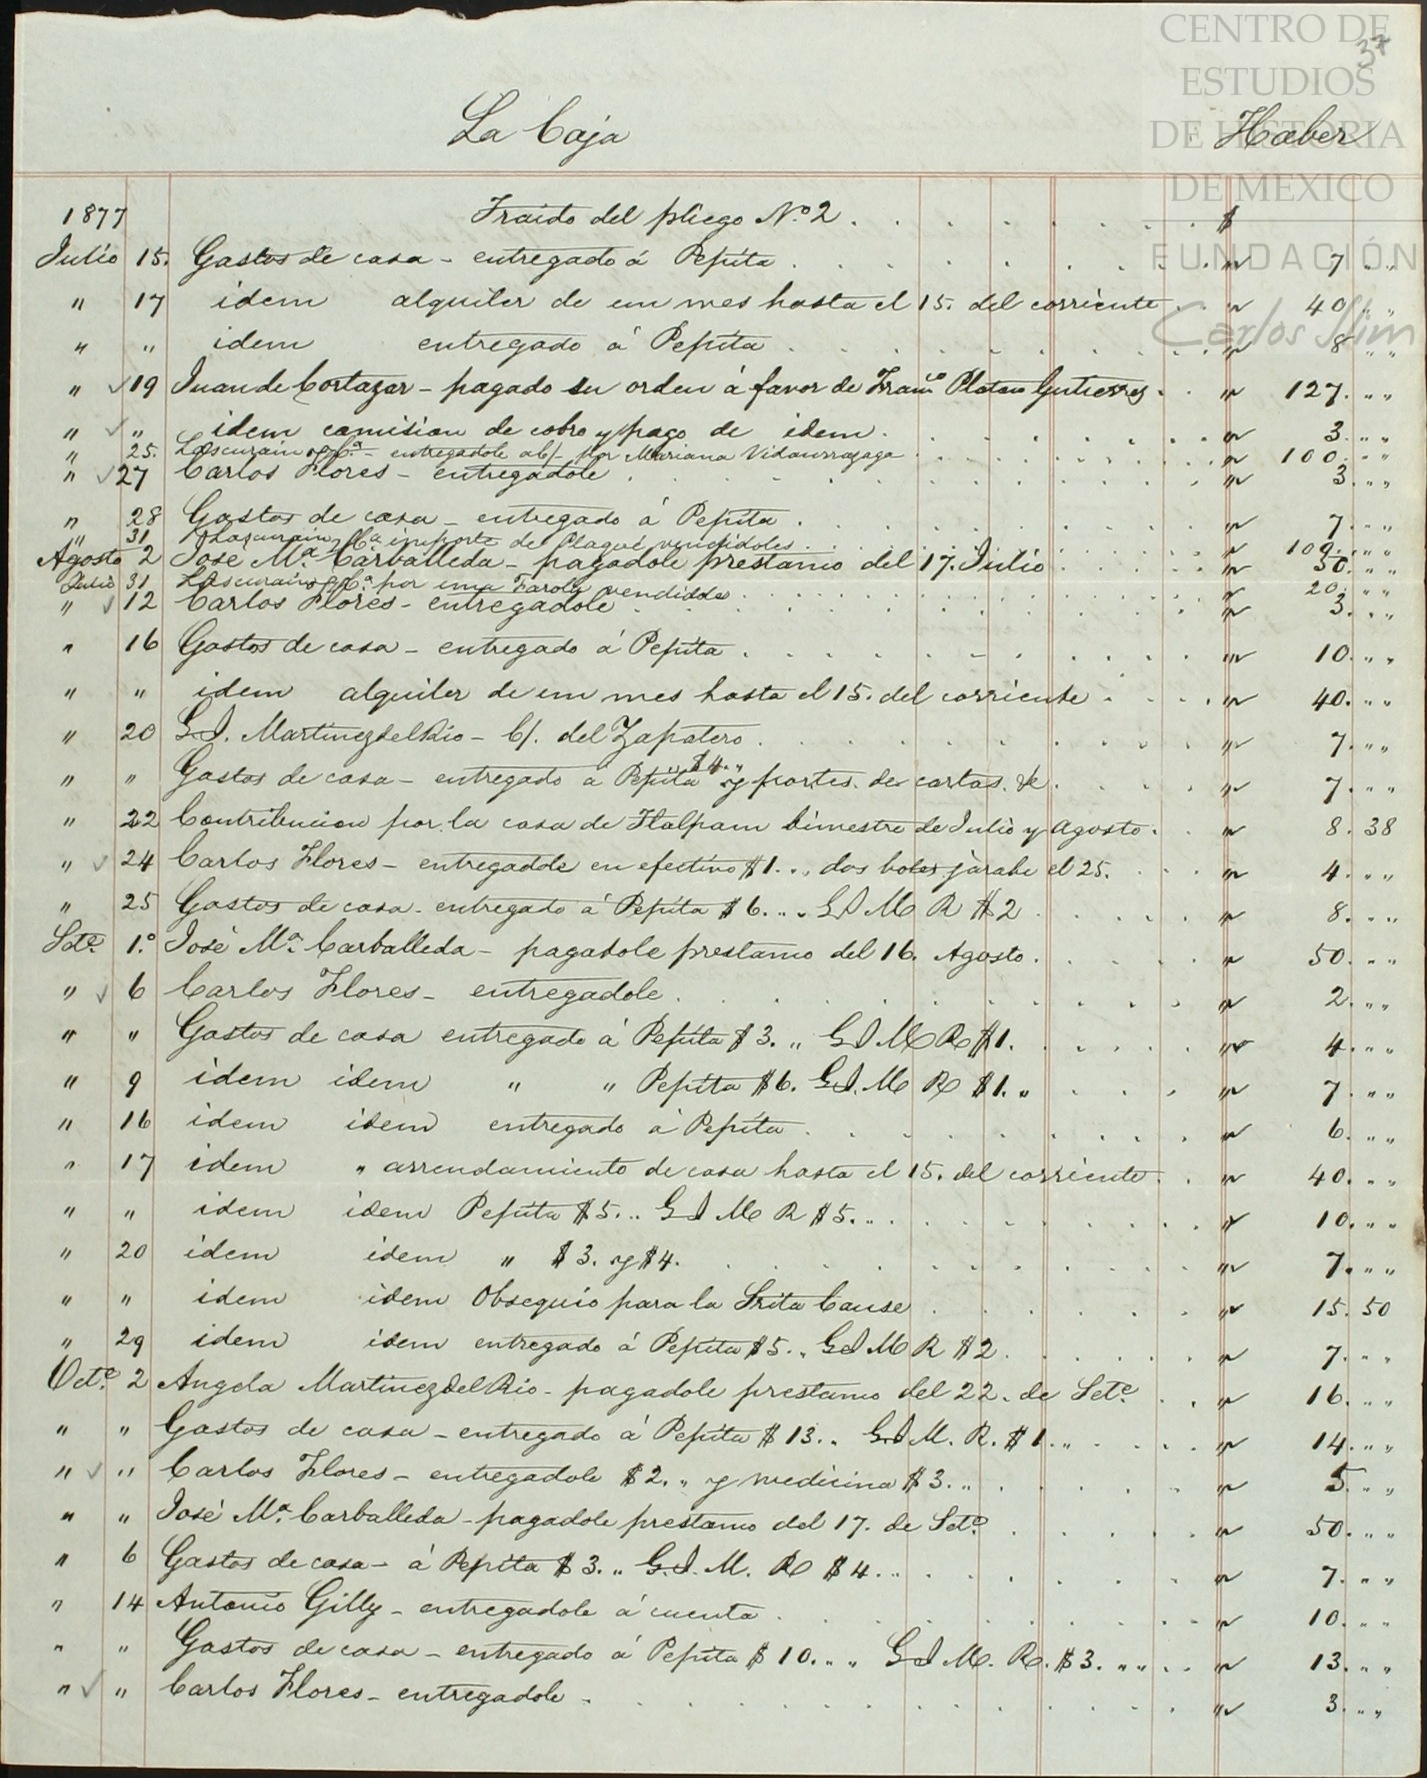 CENTRO DE
ESTUDIOS
DE HISTORIA
DE MEXICO
FUNDACIÓN
Carlos Slim
37
La Caja Haber
1877 Traido del pliego N.o 2 . . . $
Julio 15. Gastos de casa - entregado á Pepita . . . " 7 " "
" 17 idem alquiler de un mes hasta el 15. del corriente . . " 40 " "
" " idem entregado á Pepita . . . " 8 " "
" ✓ 19 Juan de Cortazar - pagado su orden á favor de Fran.co Platon Gutierrez . . " 127. " "
" ✓ " idem comision de cobro y pago de idem . . . " 3. " "
" 25. Lascurain y C.a - entregadole ab/- por Mariana Vidaurrazaga . . . " 100. " "
" ✓ 27 Carlos Flores - entregadole . . . " 3. " "
" 28 Gastos de casa - entregado á Pepita . . . " 7. " "
" 31 Lascurain y C.a importe de Plaqué vendidoles . . . " 109. " "
Agosto 2 José M.a Carballeda - pagadole prestamo del 17. Julio . . . " 50. " "
Julio 31 Lascurain y C.a por una Farola vendida . . . " 20. " "
" ✓ 12 Carlos Flores - entregadole . . . " 3. " "
" 16 Gastos de casa - entregado á Pepita . . . " 10. " "
" " idem alquiler de un mes hasta el 15. del corriente . . . " 40. " "
" 20 G.I. Martinez del Rio - C/. del Zapatero . . . " 7. " "
" " Gastos de casa - entregado á Pepita $4. " y portes de cartas. &c. . . . " 7. " "
" 22 Contribucion por la casa de Tlalpam bimestre de Julio y Agosto . . " 8. 38
" ✓ 24 Carlos Flores - entregadole en efectivo $1. ", dos botes jarabe el 25. . . . " 4. " "
" 25 Gastos de casa - entregado á Pepita $6. " " G I M R $2 . . . " 8. " "
Set.e 1.o José M.a Carballeda - pagadole prestamo del 16. Agosto . . . " 50. " "
" ✓ 6 Carlos Flores - entregadole . . . " 2. " "
" " Gastos de casa entregado á Pepita $3. " G I M R $1. . . . " 4. " "
" 9 idem idem " " Pepita $6. G.I. M R $1. " . . . " 7. " "
" 16 idem idem entregado á Pepita . . . " 6. " "
" 17 idem " arrendamiento de casa hasta el 15. del corriente . . " 40. " "
" " idem idem Pepita $5. " G I M R $5. " . . . " 10. " "
" 20 idem idem " $3. y $4. . . . " 7. " "
" " idem idem Obsequio para la Srita Cause . . . " 15. 50
" 29 idem idem entregado á Pepita $5. " G I M R $2. . . . " 7. " "
Oct.e 2 Angela Martinez del Rio - pagadole prestamo del 22. de Set.e . . " 16. " "
" " Gastos de casa - entregado á Pepita $13. " G.I M. R. $1. " . . . " 14. " "
" ✓ " Carlos Flores - entregadole $2. " y medicina $3. " . . . " 5. " "
" " José M.a Carballeda - pagadole prestamo del 17. de Set.e . . . " 50. " "
" 6 Gastos de casa - á Pepita $3. " G.I. M. R $4. " . . . " 7. " "
" 14 Antonio Gilly - entregadole á cuenta . . . " 10. " "
" " Gastos de casa - entregado á Pepita $10. " " G I M. R. $3. " " . . " 13. " "
" ✓ " Carlos Flores - entregadole . . . " 3. " "